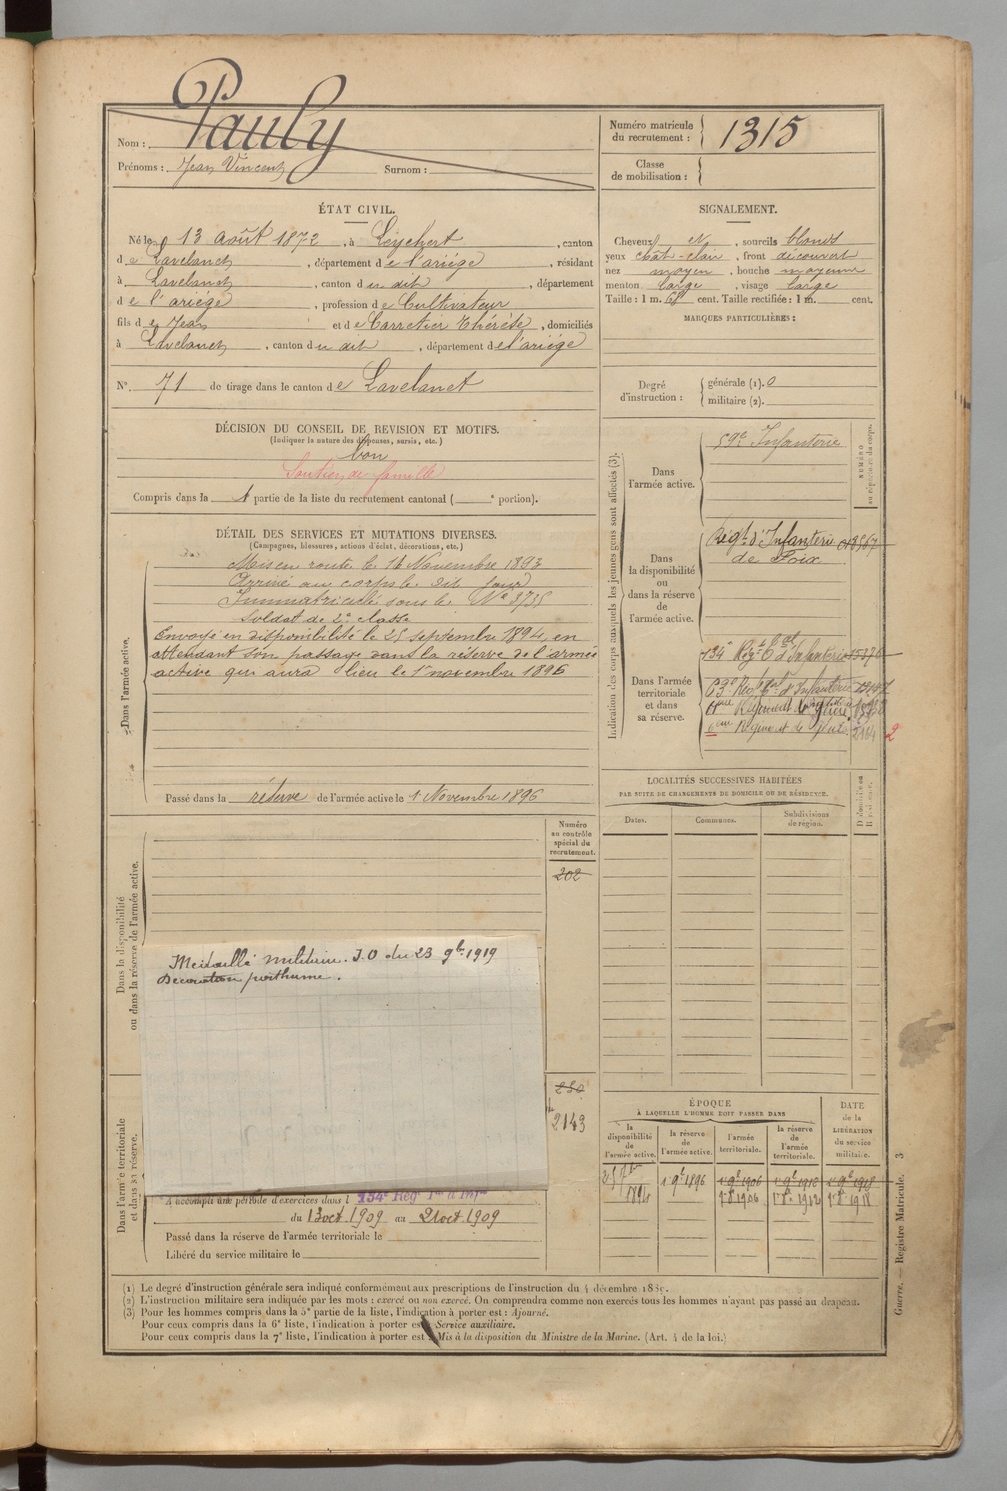 Nom : Pauly
Prénoms : Jean Vincent Surnom :
Numéro matricule du recrutement : 1315
Classe de mobilisation :
ÉTAT CIVIL.
Né le 13 août 1872, à Leychert, canton
de Lavelanet, département de l'ariége, résidant
à Lavelanet, canton du dit, département
de l'ariége, profession de Cultivateur
fils de Jean et de Carretier Thérèse, domiciliés
à Lavelanet, canton du dit, département de l'ariége
N°. 71 de tirage dans le canton de Lavelanet
SIGNALEMENT.
Cheveux et, sourcils blonds
yeux chat-clair, front découvert
nez moyen, bouche moyenne
menton large, visage large
Taille : 1 m. 68 cent. Taille rectifiée : 1 m. cent.
MARQUES PARTICULIÈRES :
Degré d'instruction : générale (1). 0
militaire (2).
DÉCISION DU CONSEIL DE REVISION ET MOTIFS.
(Indiquer la nature des dispenses, sursis, etc.)
bon
Soutien de famille
Compris dans la 1 partie de la liste du recrutement cantonal ( e portion).
DÉTAIL DES SERVICES ET MUTATIONS DIVERSES.
(Campagnes, blessures, actions d'éclat, décorations, etc.)
Dans l'armée active.
Mis en route le 16 Novembre 1893
Arrivé au corps le dit jour
Immatriculé sous le N° 3735
Soldat de 2e classe
Envoyé en disponibilité le 25 septembre 1894, en
attendant son passage dans la réserve de l'armée
active qui aura lieu le 1er novembre 1896
Passé dans la réserve de l'armée active le 1 Novembre 1896
Indication des corps auxquels les jeunes gens sont affectés (3).
NUMÉRO au répertoire du corps.
Dans l'armée active.
59e Infanterie
Dans la disponibilité ou dans la réserve de l'armée active.
Régt d'Infanterie
de Foix
Dans l'armée territoriale et dans sa réserve.
134e Régt tal d'Infanterie
63e Régt d'Infanterie
Régiment
Régiment de
2
LOCALITÉS SUCCESSIVES HABITÉES
PAR SUITE DE CHANGEMENTS DE DOMICILE OU DE RÉSIDENCE.
Dates. Communes. Subdivisions de région. D domicile ou R résidence.
Dans la disponibilité ou dans la réserve de l'armée active.
Numéro au contrôle spécial du recrutement.
202
Medaille militaire. J.O du 23 9bre 1919
Decoration posthume.
Dans l'armée territoriale et dans sa réserve.
250
2143
A accompli une période d'exercices dans l 134e Régt Tal d'Infie
du 13 oct. 1909 au 21 oct. 1909
Passé dans la réserve de l'armée territoriale le
Libéré du service militaire le
ÉPOQUE
À LAQUELLE L'HOMME DOIT PASSER DANS
la disponibilité de l'armée active. la réserve de l'armée active. l'armée territoriale. la réserve de l'armée territoriale.
DATE de la LIBÉRATION du service militaire.
25 7bre 1894 1er 9bre 1896 1er 9bre 1906 1er 9bre 1912 1er 9bre 1918
1906 1912 1918
(1) Le degré d'instruction générale sera indiqué conformément aux prescriptions de l'instruction du 4 décembre 1889.
(2) L'instruction militaire sera indiquée par les mots : exercé ou non exercé. On comprendra comme non exercés tous les hommes n'ayant pas passé au drapeau.
(3) Pour les hommes compris dans la 5e partie de la liste, l'indication à porter est : Ajourné.
Pour ceux compris dans la 6e liste, l'indication à porter est : Service auxiliaire.
Pour ceux compris dans la 7e liste, l'indication à porter est : Mis à la disposition du Ministre de la Marine. (Art. 4 de la loi.)
Guerre. — Registre Matricule. 3